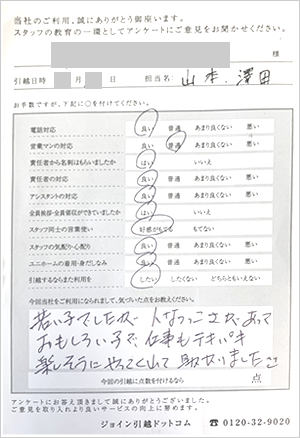 当社のご利用、誠にありがとう御座います。
スタッフの教育の一環としてアンケートにご意見をお聞かせください。
様
引越日時 月 日 担当名: 山本、澤田
お手数ですが、下記に○を付けてください。
電話対応 良い 普通 あまり良くない 悪い
営業マンの対応 良い 普通 あまり良くない 悪い
責任者から名刺はもらいましたか はい いいえ
責任者の対応 良い 普通 あまり良くない 悪い
アシスタントの対応 良い 普通 あまり良くない 悪い
全員挨拶・全員握手ができていましたか はい いいえ
スタッフ同士の言葉使い 好感がもてる もてない
スタッフの気配り・心配り 良い 普通 あまり良くない 悪い
ユニホームの着用・身だしなみ 良い 普通 あまり良くない 悪い
引越するならまた利用を したい したくない どちらともいえない
今回当社をご利用になられまして、気づいた点をお教えください。
若い子でしたが 人なつっこさがあって
おもしろい子で 仕事もテキパキ
楽しそうにやってくれて 助かりました
今回の引越に点数を付けるなら 点
アンケートにお答え頂きまして誠にありがとうございました。
ご意見を取り入れより良いサービスの向上に努めます。
ジョイン引越ドットコム ☎0120-32-9020